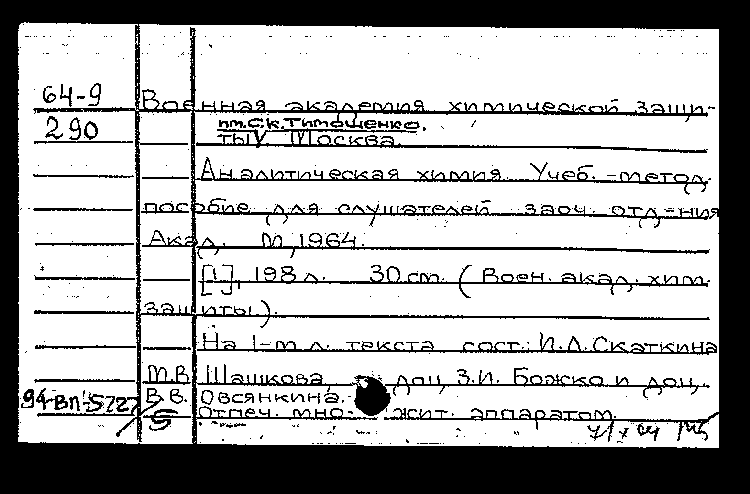 64-9 Военная академия химической защи-
290 им. С.К. Тимошенко.
ты. Москва.
Аналитическая химия. Учеб.-метод.
пособие для слушателей заоч. отд-ния
Акад. М., 1964.
[1], 198 л. 30 см. (Воен. акад. хим.
защиты.)
На 1-м л. текста сост.: И.Л. Скаткина
М.В. Шашкова, доц. З.И. Божко и доц.
94-ВП-5727 В.В. Овсянкина.
5 Отпеч. множит. аппаратом.